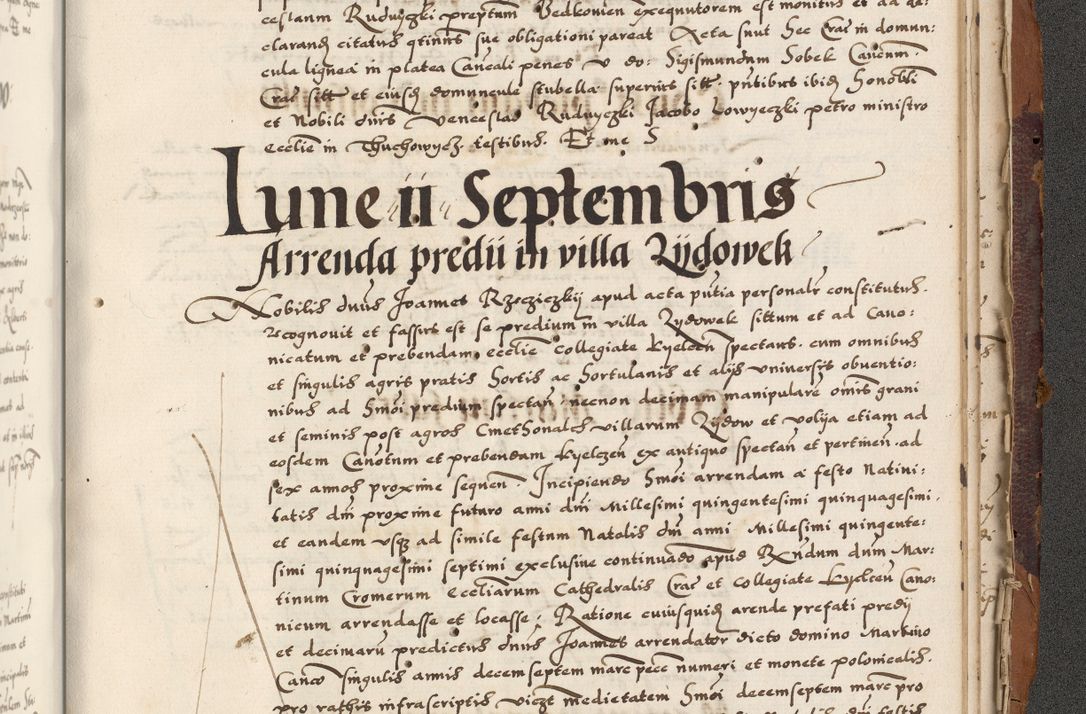 cestarum Ruduyczki preptum Bedkovien exequutorem est monitus et ad de:
clarand citatus qtinus sue obligationi pareat Acta sunt hec Crac in domun:
cula lignea in platea Cancali penes v do: Sigismundum Sobek Canonicum
Crac sitt et eiusq domuncule stubella superius sitt. pntibus ibid honobli
et Nobili dnis Venceslao Ruduyczki Jacobo Lowyeczki petro ministro
ecclie in Thuchowycz testibus. Et me S
Lune ii Septembris
Arrenda predii in villa Zÿdowek
Nobilis dnus Joannes Rzocziczkÿ apud acta pntia personalr constitutus.
Recognovit et fassus est se predium in villa Zydowek sittum et ad Cano:
nicatum et prebendam ecclie Collegiate Kyelcen spectans. cum omnibus
et singulis agris pratis hortis ac hortulanis et alijs universis obventio:
nibus ad hmoi predium spectan necnon decimam manipulare omis grani
et seminis post agros Cmethonales villarum Zydow et Volija etiam ad
eosdem Canotum et prebendam Kyelczen ex antiquo spectan et pertinen. ad
sex annos proxime sequen Incipiendo hmoi arrendam a festo Nativi:
tatis dni proxime futuro anni dni Millesimi quingentesimi quinquagesimi.
et eandem usq ad simile festum Natalis dni anni Millesimi quingente:
simi quinquagesimi septimi exclusive continuado apud Rndum dnm Mar:
tinum Cromerum Eccliarum Cathedralis Crac et Collegiate Kyelcen Cano:
nicum arrendasse et locasse; Ratione cuiusquid arende prefati predij
et decimaru predictus dnus Joannes arrendator dicto domino Martino
Canco singulis annis decemseptem marc pecc numeri et monete polonicalis.
pro rathis infrascriptis viczt medietatem hmoi decemseptem marc pro